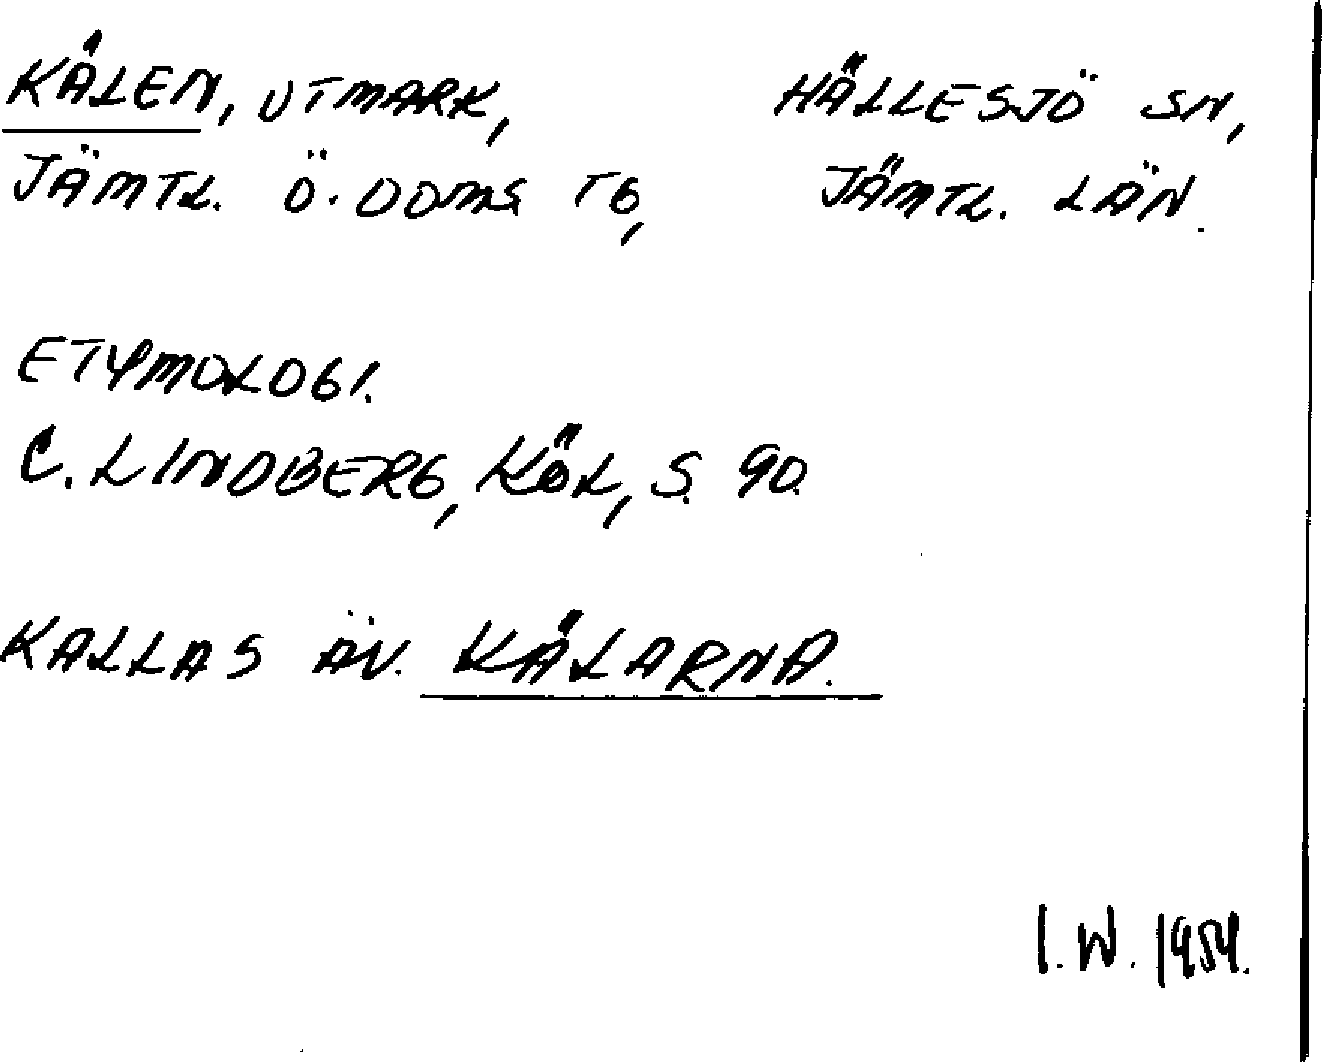 KÅLEN, UTMARK, HÄLLESJÖ SN,
JÄMTL. Ö. DOMS TG, JÄMTL. LÄN.
ETYMOLOGI.
C. LINDBERG, KÖL, S. 90.
KALLAS ÄV. KÅLARNA.
I. W. 1954.